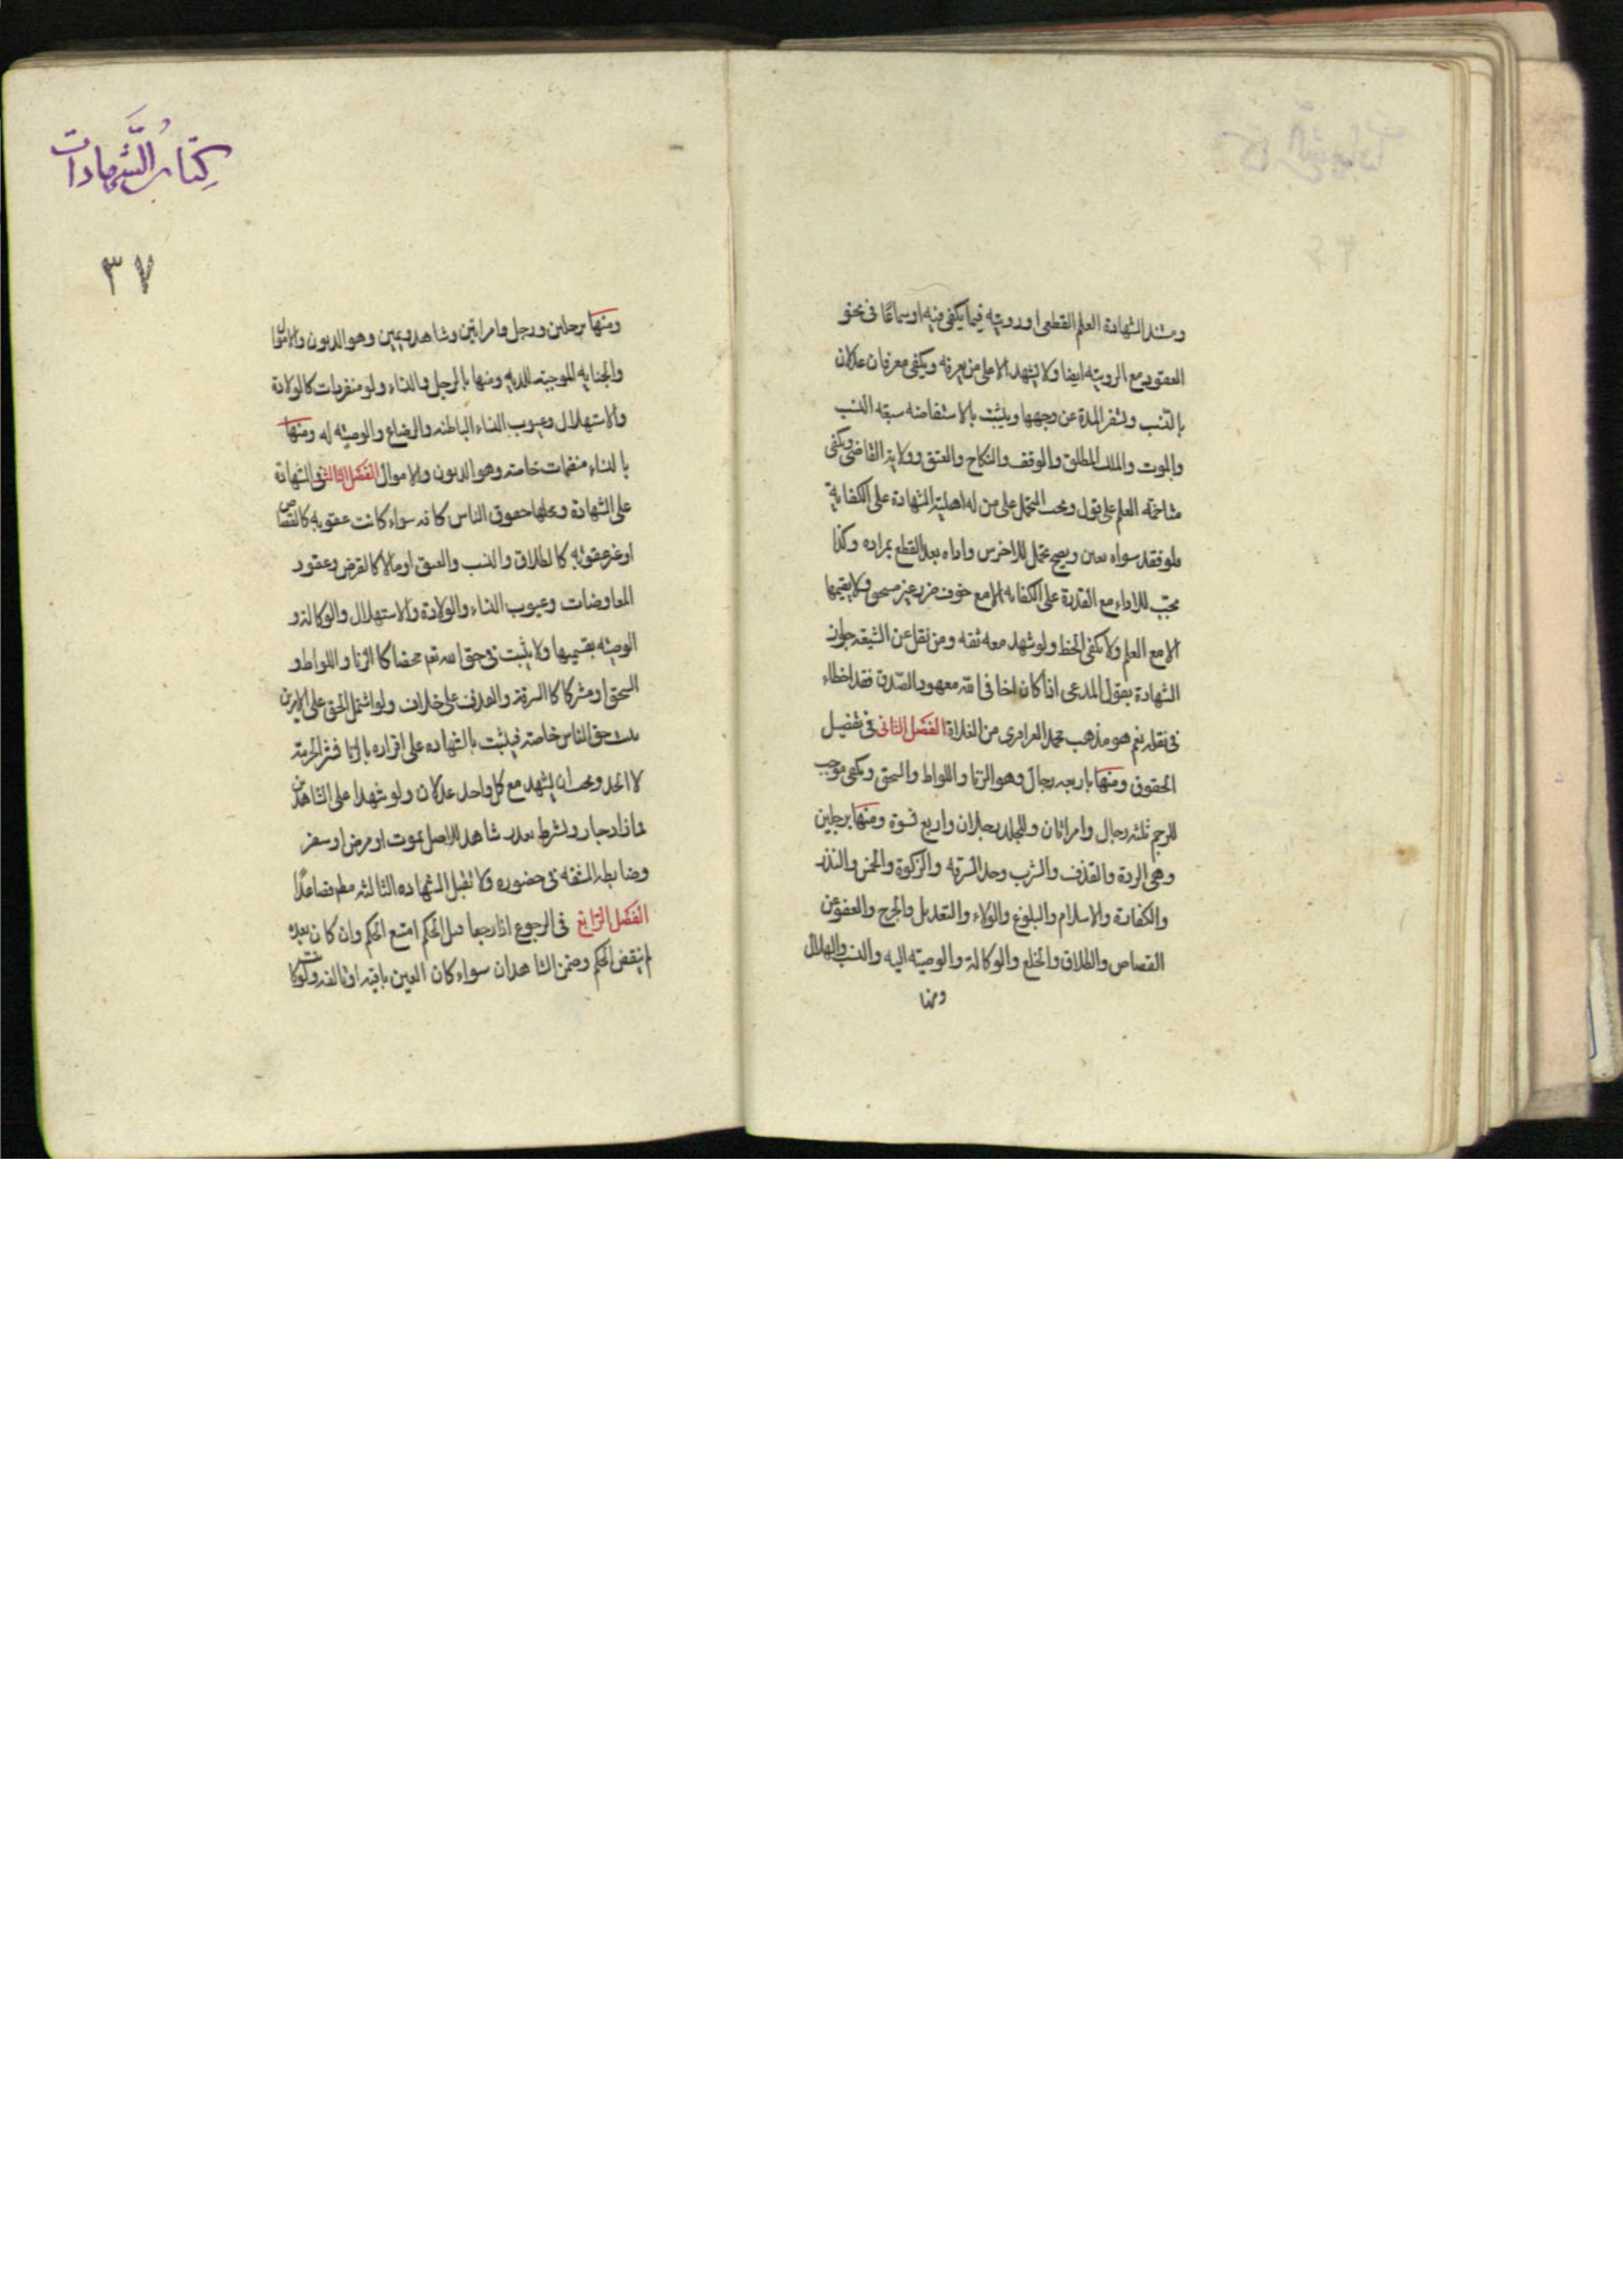 ومستند الشهادة العلم القطعى او رويته فيما يكفى فيه او سماعا فى نحو
العقود مع الرويته ايضا ولا يشهد الا على من يعرفه ويكفى معرفان عدلان
بالنسب وتسفر المراة عن وجهها ويثبت بالاستفاضه سبعه النسب
والموت والملك المطلق والوقف والنكاح والعتق وولاية القاضى ويكفى
متاخمه العلم على قول ويجب التحمل على من له اهلية الشهادة على الكفاية
فلو فقد سواه تعين ويصح تحمل الاخرس واداه بعد القطع بمراده وكذا
يجب الاداء مع القدرة على الكفايه الا مع خوف ضرر غير مستحق ولا يقيمها
الا مع العلم ولا يكفى الخط ولو شهد معه ثقه ومن نقل عن الشيعة جواز
الشهادة بقول المدعى اذا كان اخا فى الله معهود الصدق فقد اخطاء
فى نقله نعم هو مذهب محمد العزاقرى من الغلاة الفصل الثانى فى تفصيل
الحقوق ومنها باربعه رجال وهو الزنا واللواط والسحق ويكفى موجب
للرجم ثلثه رجال وامراتان وللجلد رجلان واربع نسوة ومنها برجلين
وهى الردة والقذف والشرب وحد السرقه والزكوة والخمس والنذر
والكفارة والاسلام والبلوغ والولاء والتعديل والجرح والعفو عن
القصاص والطلاق والخلع والوكالة والوصيته اليه والنسب والهلال
ومنها
كتاب الشهادات
٣٧
ومنها برجلين ورجل وامراتين وشاهد ويمين وهو الديون والاموال
والجنايه الموجبته للديه ومنها بالرجل والنساء ولو منفردات كالولادة
والاستهلال وعيوب النساء الباطنه والرضاع والوصيته له ومنها
بالنساء منضمات خاصه وهو الديون والاموال الفصل الثالث فى الشهادة
على الشهادة ومحلها حقوق الناس كافه سواء كانت عقوبه كالقصاص
او غير عقوبه كالطلاق والنسب والعتق او مالا كالقرض وعقود
المعاوضات وعيوب النساء والولادة والاستهلال والوكالة و
الوصيته بقسميها ولا يثبت فى حق الله تعم محضا كالزنا واللواط و
السحق او مشتركا كالسرقة والقذف على خلاف ولو اشتمل الحق على الامرين
يثبت حق الناس خاصة فيثبت بالشهاده على اقراره بالزنا نشر الحرمة
لا الحد ويجب ان يشهد مع كل واحد عدلان ولو شهدا على الشاهدين
فمازاد جاز ويشرط تعذر شاهد الاصل بموت او مرض او سفر
وضابطه المشقه فى حضوره ولا تقبل الشهاده الثالثه مطم فصاعدا
الفصل الرابع فى الرجوع اذا رجعا قبل الحكم امتنع الحكم وان كان بعده
لم ينقض الحكم وضمن الشاهدان سواء كان العين باقيه او تالفه ولو كانت